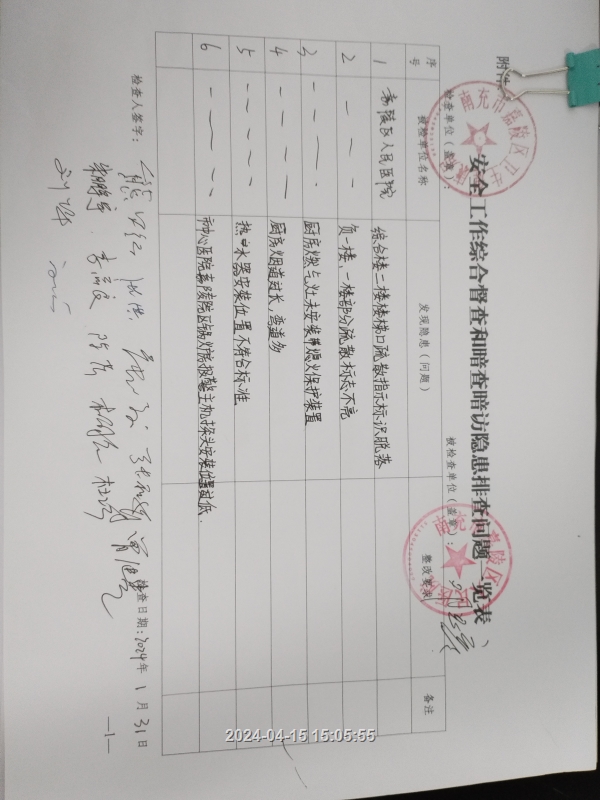 附件
安全工作综合督查和暗查暗访隐患排查问题一览表
检查单位（盖章）： 被检查单位（盖章）：
序号 被检单位名称 发现隐患（问题） 整改要求 备注
1 嘉陵区人民医院 综合楼二楼楼梯口疏散指示标识脱落
2 — — — 负一楼、一楼部分疏散标志不亮
3 — — — 厨房燃气灶未安装熄火保护装置
4 — — — — 厨房烟道过长，弯道多
5 — — — — — 热水器安装位置不符合标准
6 — — — — 中心医院嘉陵院区锅炉房报警主机探头安装位置过低.
检查人签字：
检查日期：2024年1月31日
—1—
2024-04-15 15:05:55